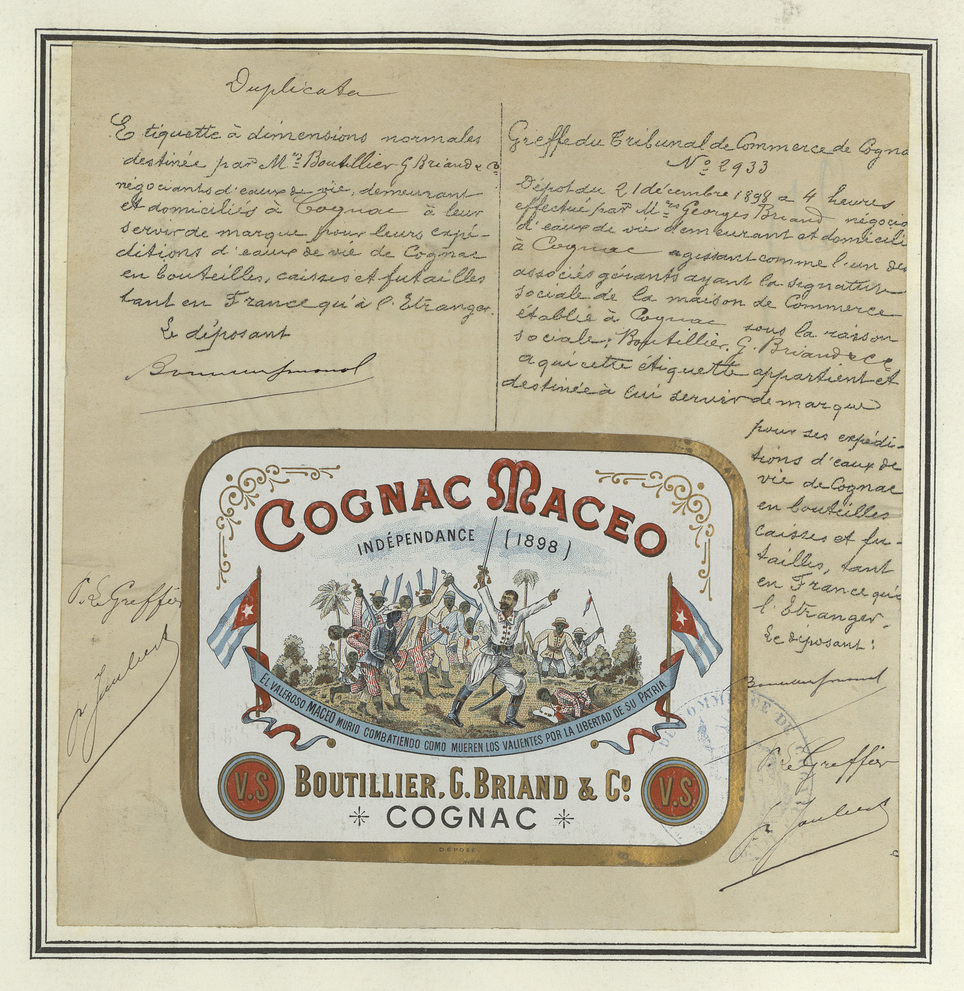 Duplicata
Etiquette à dimensions normales
destinée par Mrs Boutillier G Briand & Co
négociants d'eaux de vie, demeurant
et domiciliés à Cognac à leur
servir de marque pour leurs expé-
ditions d'eaux de vie de Cognac
en bouteilles, caisses et futailles
tant en France qu'à l'Etranger.
Le déposant
Greffe du Tribunal de Commerce de Cogna
No 2933
Dépot du 21 décembre 1898 a 4 heures
effectué par Mrs Georges Briand négocia
d'eaux de vie demeurant et domicili
à Cognac agissant comme l'un des
associés gérants ayant la signature
sociale de la maison de Commerce
établie à Cognac sous la raison
sociale: Boutillier, G. Briand & Cie
a qui cette étiquette appartient et
destinée à lui servir de marque
pour ses expédi-
tions d'eaux de
vie de Cognac
en bouteilles
caisses et fu-
tailles, tant
en France qu'à
l'Etranger.
Le déposant:
P. Le Greffier
P. Le Greffier
COGNAC MACEO
INDÉPENDANCE (1898)
EL VALEROSO MACEO MURIO COMBATIENDO COMO MUEREN LOS VALIENTES POR LA LIBERTAD DE SU PATRIA
V.S BOUTILLIER, G. BRIAND & Co V.S.
COGNAC
DÉPOSÉ